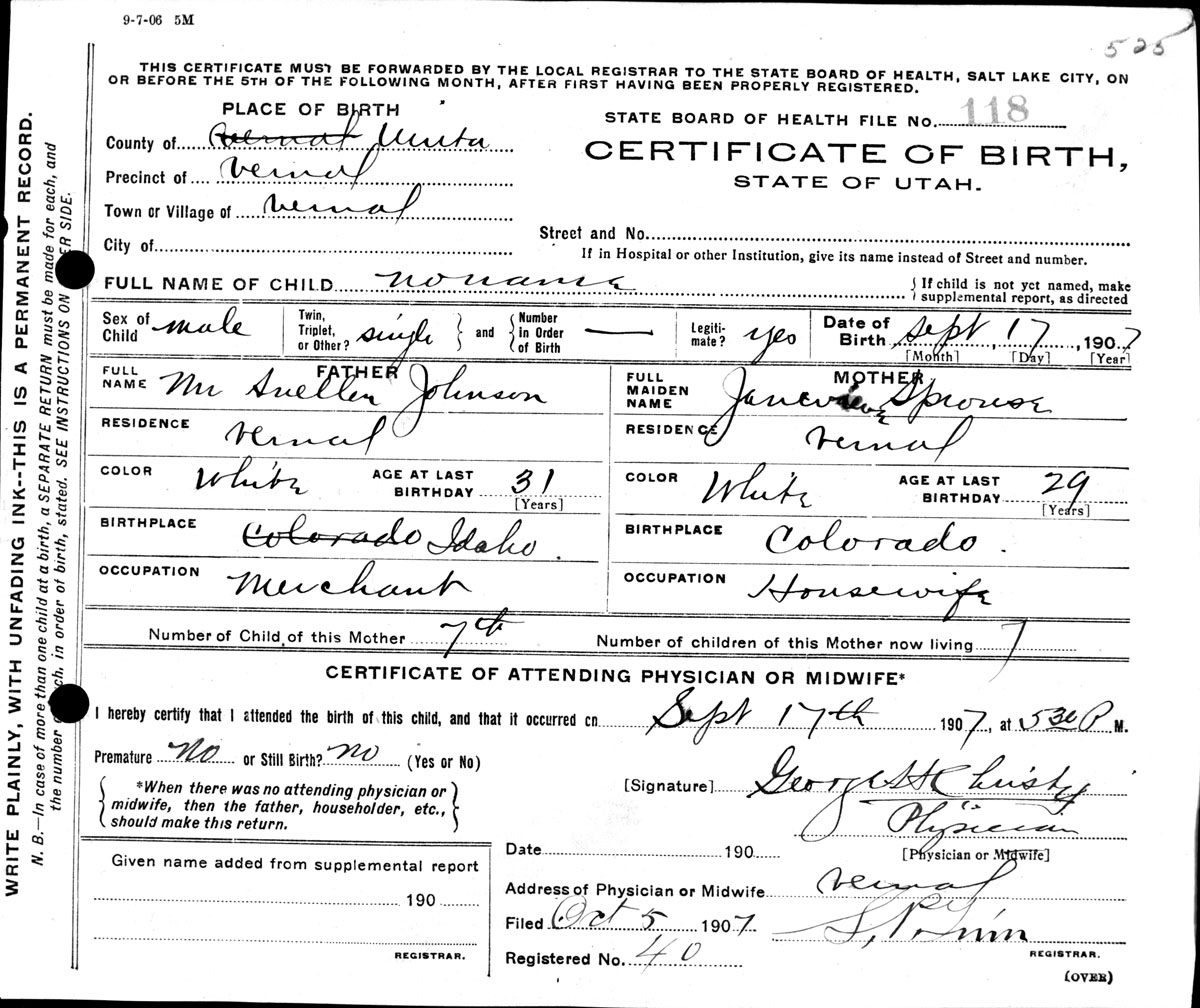 9-7-06 5M
525
THIS CERTIFICATE MUST BE FORWARDED BY THE LOCAL REGISTRAR TO THE STATE BOARD OF HEALTH, SALT LAKE CITY, ON
OR BEFORE THE 5TH OF THE FOLLOWING MONTH, AFTER FIRST HAVING BEEN PROPERLY REGISTERED.
PLACE OF BIRTH
STATE BOARD OF HEALTH FILE No. 118
County of Vernal Uinta
CERTIFICATE OF BIRTH,
STATE OF UTAH.
Precinct of Vernal
Town or Village of Vernal
City of
Street and No.
If in Hospital or other Institution, give its name instead of Street and number.
FULL NAME OF CHILD no name
{ If child is not yet named, make
supplemental report, as directed
Sex of Child male
Twin, Triplet, or Other? single } and { Number in Order of Birth —
Legitimate? yes
Date of Birth Sept 17, 1907
[Month] [Day] [Year]
FATHER
FULL NAME Mr Snellen Johnson
RESIDENCE Vernal
COLOR White AGE AT LAST BIRTHDAY 31
[Years]
BIRTHPLACE Colorado Idaho.
OCCUPATION Merchant
MOTHER
FULL MAIDEN NAME Janevieve Sprouse
RESIDENCE Vernal
COLOR White AGE AT LAST BIRTHDAY 29
[Years]
BIRTHPLACE Colorado.
OCCUPATION Housewife
Number of Child of this Mother 7th Number of children of this Mother now living 7
CERTIFICATE OF ATTENDING PHYSICIAN OR MIDWIFE*
I hereby certify that I attended the birth of this child, and that it occurred on Sept 17th 1907, at 530 P M.
Premature No or Still Birth? No (Yes or No)
{ *When there was no attending physician or
midwife, then the father, householder, etc.,
should make this return. }
[Signature] George H Christy
Physician
[Physician or Midwife]
Date 190
Address of Physician or Midwife Vernal
Filed Oct 5 1907
REGISTRAR.
Registered No. 40
(OVER)
Given name added from supplemental report
190
REGISTRAR.
WRITE PLAINLY, WITH UNFADING INK--THIS IS A PERMANENT RECORD.
N. B.—In case of more than one child at a birth, a SEPARATE RETURN must be made for each, and
the number of each, in order of birth, stated. SEE INSTRUCTIONS ON OTHER SIDE.